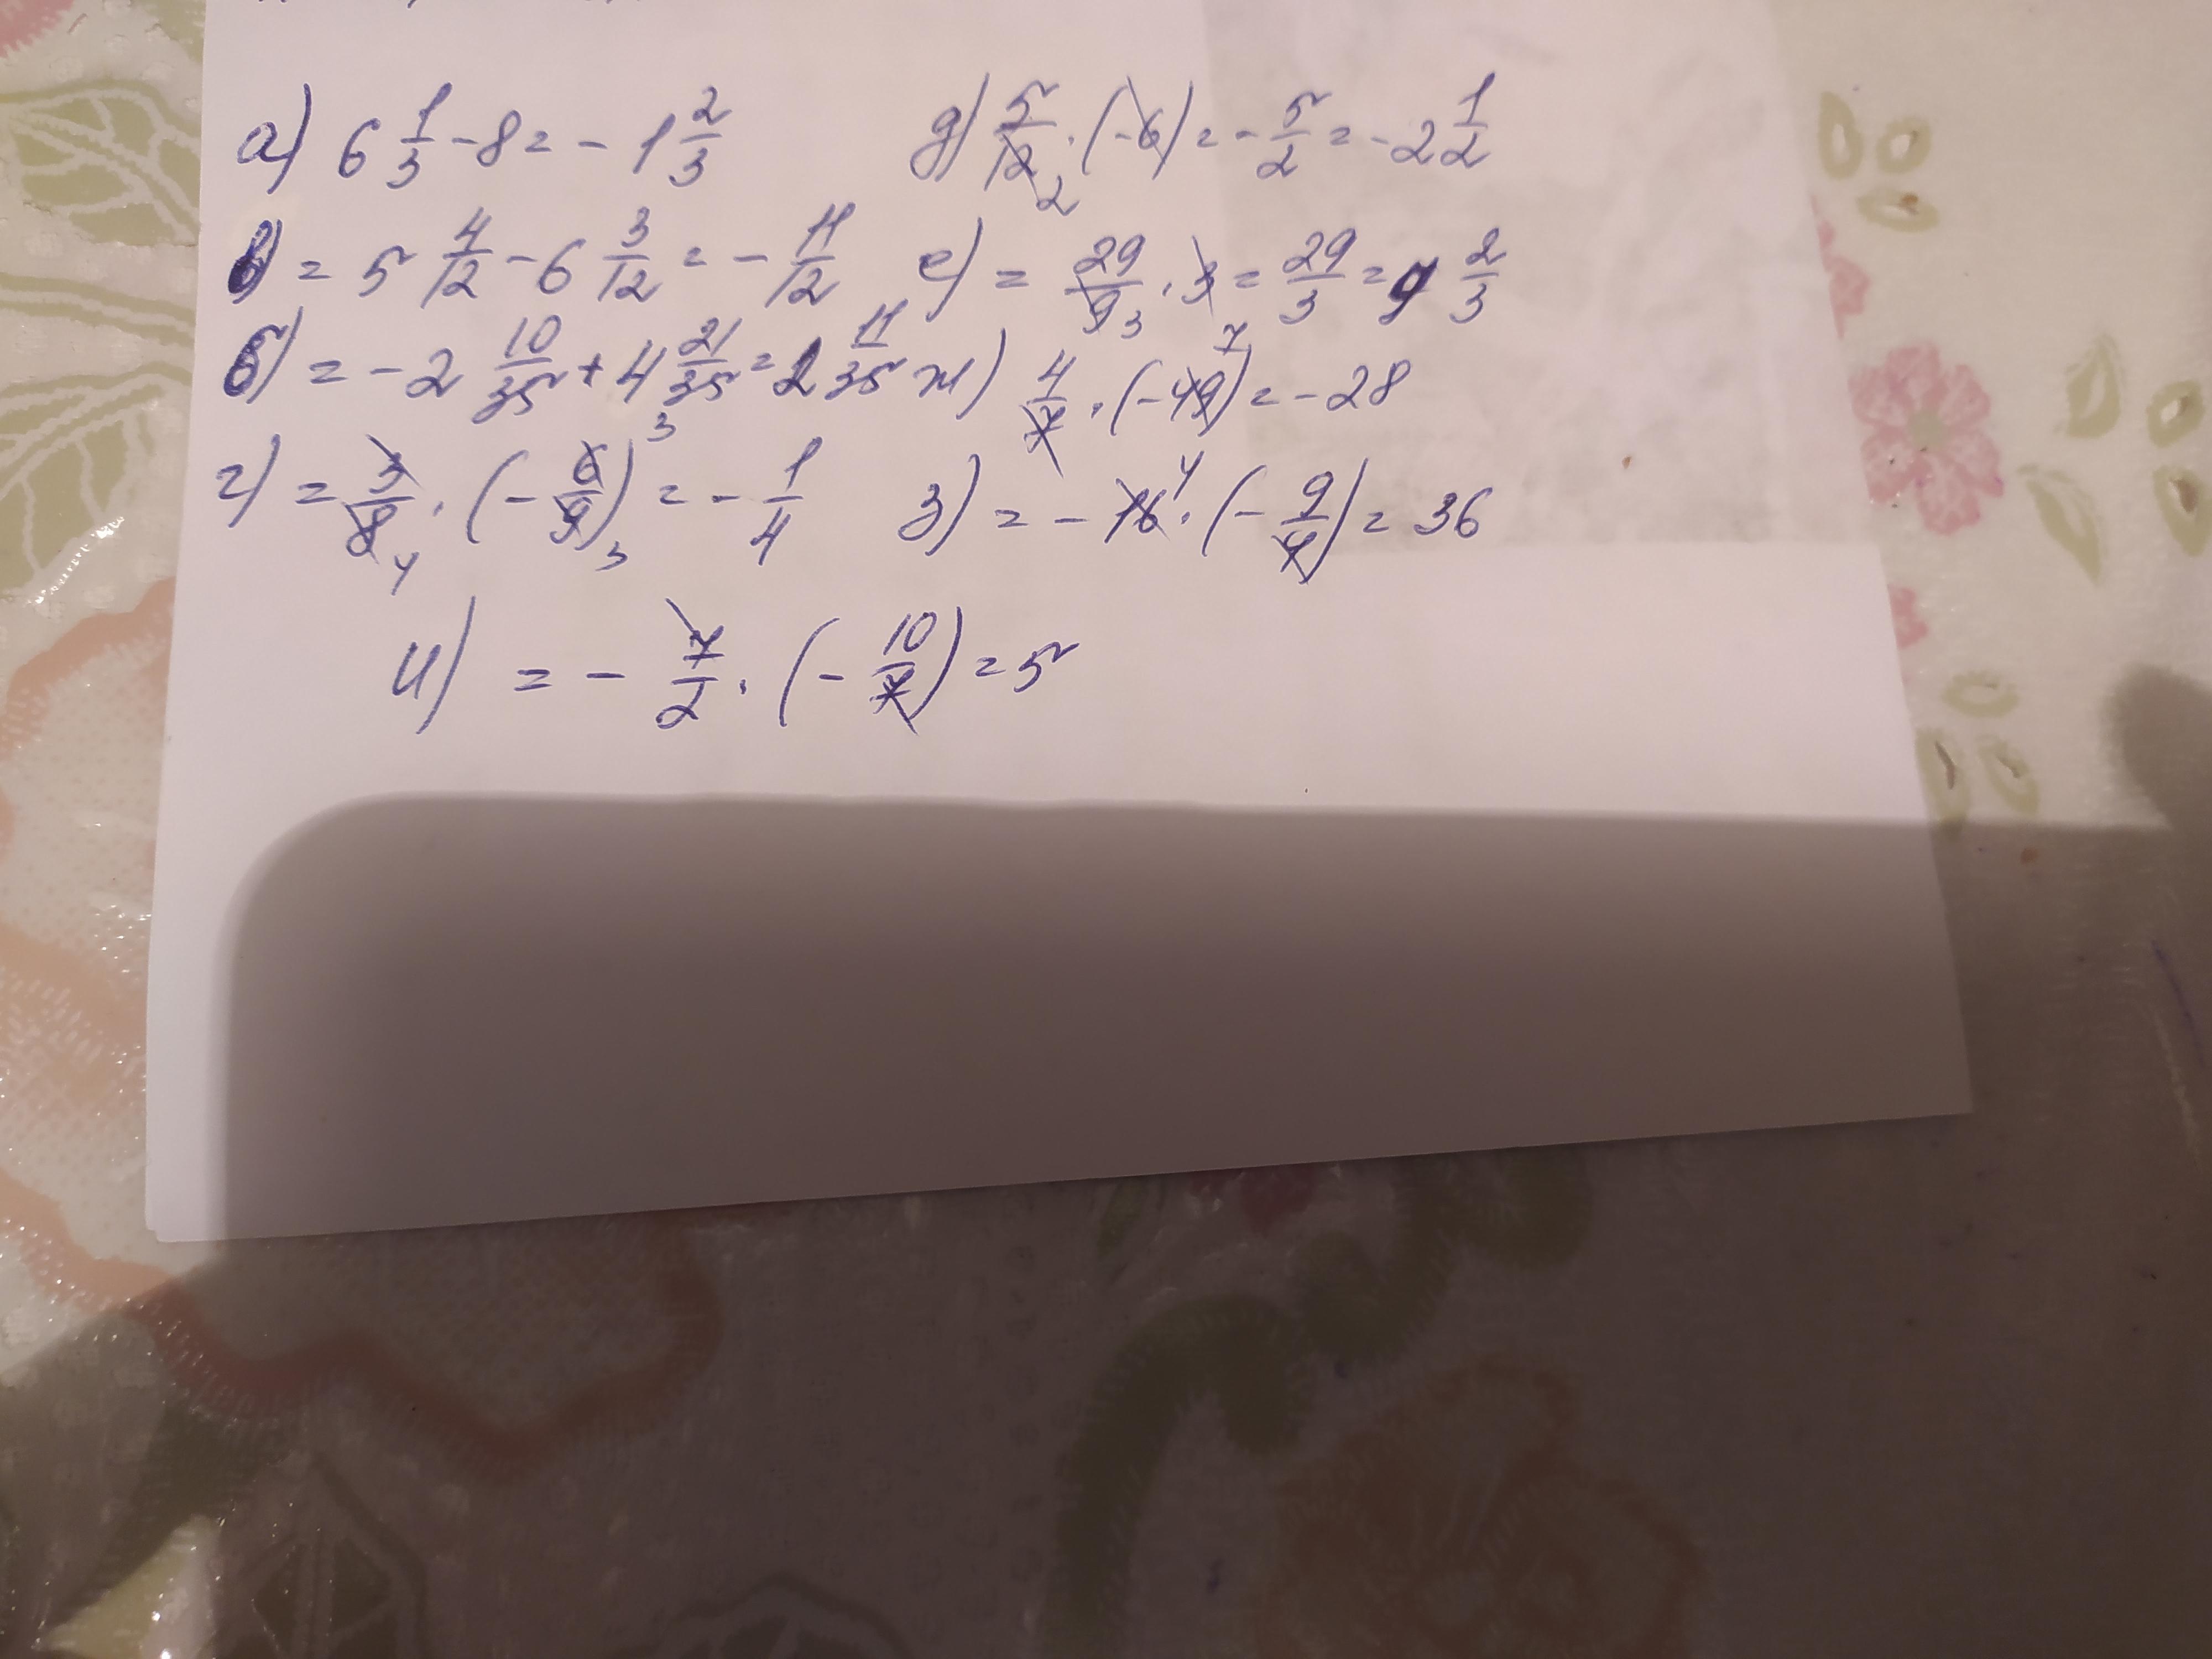 а) 6 1/3 - 8 = - 1 2/3 д) 5/12 · (-6) = - 5/2 = - 2 1/2
2
в) = 5 4/12 - 6 3/12 = - 11/12 е) = 29/9 · 3 = 29/3 = 9 2/3
3
б) = - 2 10/35 + 4 21/35 = 2 11/35 ж) 4/7 · (-49) = - 28
7
г) = 3/8 · (- 6/9) = - 1/4 з) = - 16 · (- 9/4) = 36
3 4 3 4
и) = - 7/2 · (- 10/7) = 5